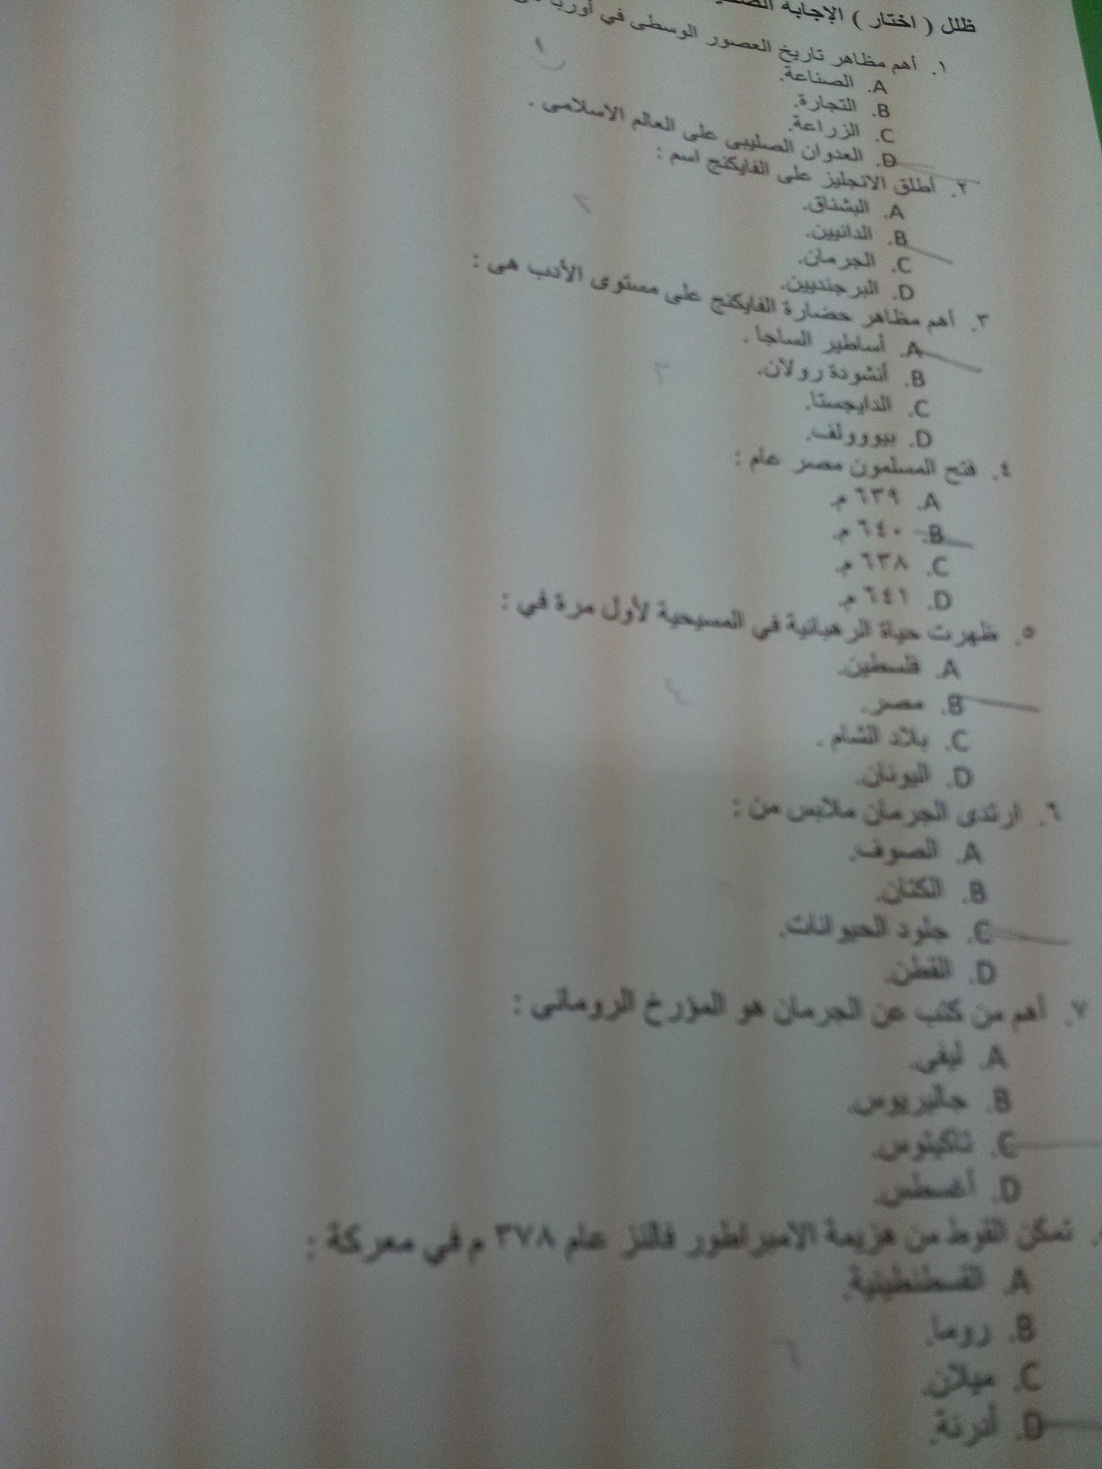 ظلل ( اختار ) الإجابة
١. أهم مظاهر تاريخ العصور الوسطى في أوربا
A. الصناعة.
B. التجارة.
C. الزراعة.
D. العدوان الصليبى على العالم الاسلامى .
٢. أطلق الانجليز على الفايكنج اسم :
A. البشناق.
B. الدانيين.
C. الجرمان.
D. البرجنديين.
٣. أهم مظاهر حضارة الفايكنج على مستوى الأدب هى :
A. أساطير الساجا .
B. أنشودة رولان.
C. الدايجستا.
D. بيووولف.
٤. فتح المسلمون مصر عام :
A. ٦٣٩ م.
B. ٦٤٠ م.
C. ٦٣٨ م.
D. ٦٤١ م.
٥. ظهرت حياة الرهبانية في المسيحية لأول مرة في :
A. فلسطين.
B. مصر.
C. بلاد الشام .
D. اليونان.
٦. ارتدى الجرمان ملابس من :
A. الصوف.
B. الكتان.
C. جلود الحيوانات.
D. القطن.
٧. أهم من كتب عن الجرمان هو المؤرخ الرومانى :
A. ليفى.
B. جاليريوس.
C. تاكيتوس.
D. أغسطس.
تمكن القوط من هزيمة الامبراطور فالنز عام ٣٧٨ م في معركة :
A. القسطنطينية.
B. روما.
C. ميلان.
D. أدرنة.